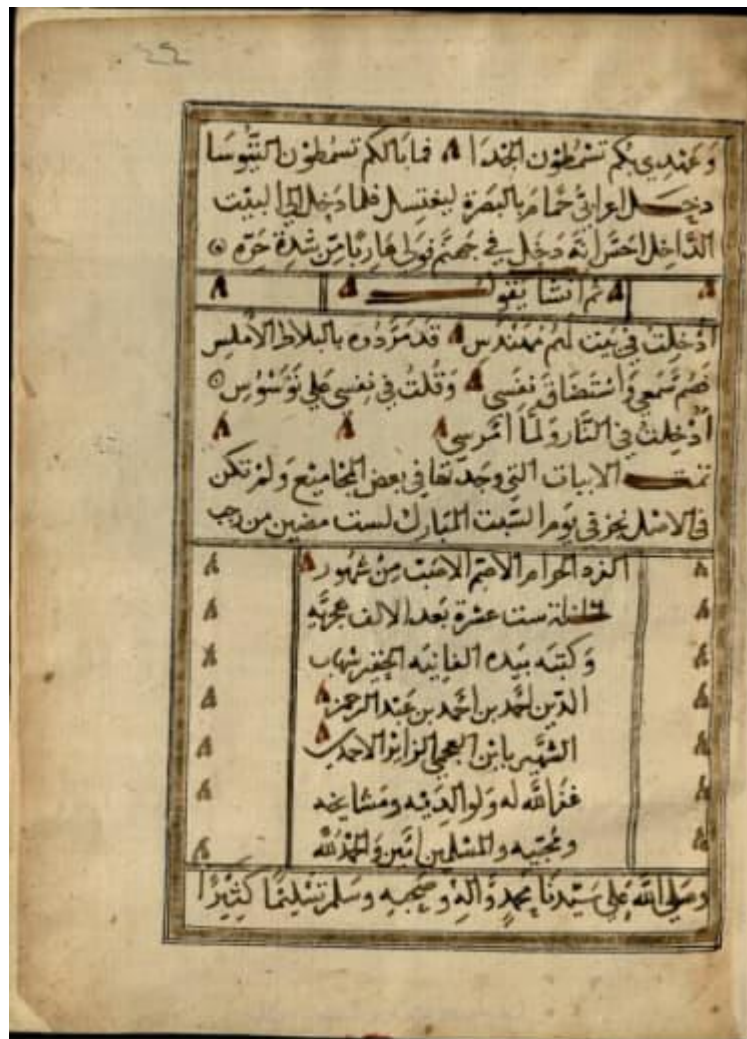 وَعَهْدِي بِكم تسْمطُون الجَدَا فما بَالكم تسمُطوُن التيُّوسَا
دخل اعرابيُّ حمَّام بالبصَرة ليغتسل فلما دَخِل الي البيْت
الدَّاخِل احسَّ انه دَخل في جهنم فولي هاربًا مِن شدة حَرّه
ثم انشَا يقول
اُدْخِلتُ في بَيت لهُم مُهَندس قد مَرَّدُوه بالبلاط الاملس
فصُمَّ سَمعِي وَاسْتضاقَ نفَسي وَقُلتُ في نفسي علي توَسْوُس
اُدْخِلتُ في النَّار وَلمَّا اُرْمسِ
تمت الابيات التي وجَدتها في بعض المجاميْع وَلم تكن
في الاصل نجزت في يوم السَّبت المبَارك لست مضين من رجب
الفرد الحرام الاصَم الاصَب مِن شهُور
سنة ست عشرة بَعد الالف هجريَّه
وَكتبَه بيَده الفانِيَه الحقير شهاب
الدّين احمد بن احمد بن عَبد الرحمن
الشهَير بابن العجمي الاحمدي
غفر الله له وَلوالدَيه ومشايخه
ومُحبّيه والمسْلمين امين وَالحمدُ لله
وصَلي الله عَلي سَيّدنَا مُحمدٍ وَّاله وصَحبه وسَلم تسْليمًا كثيْرًا